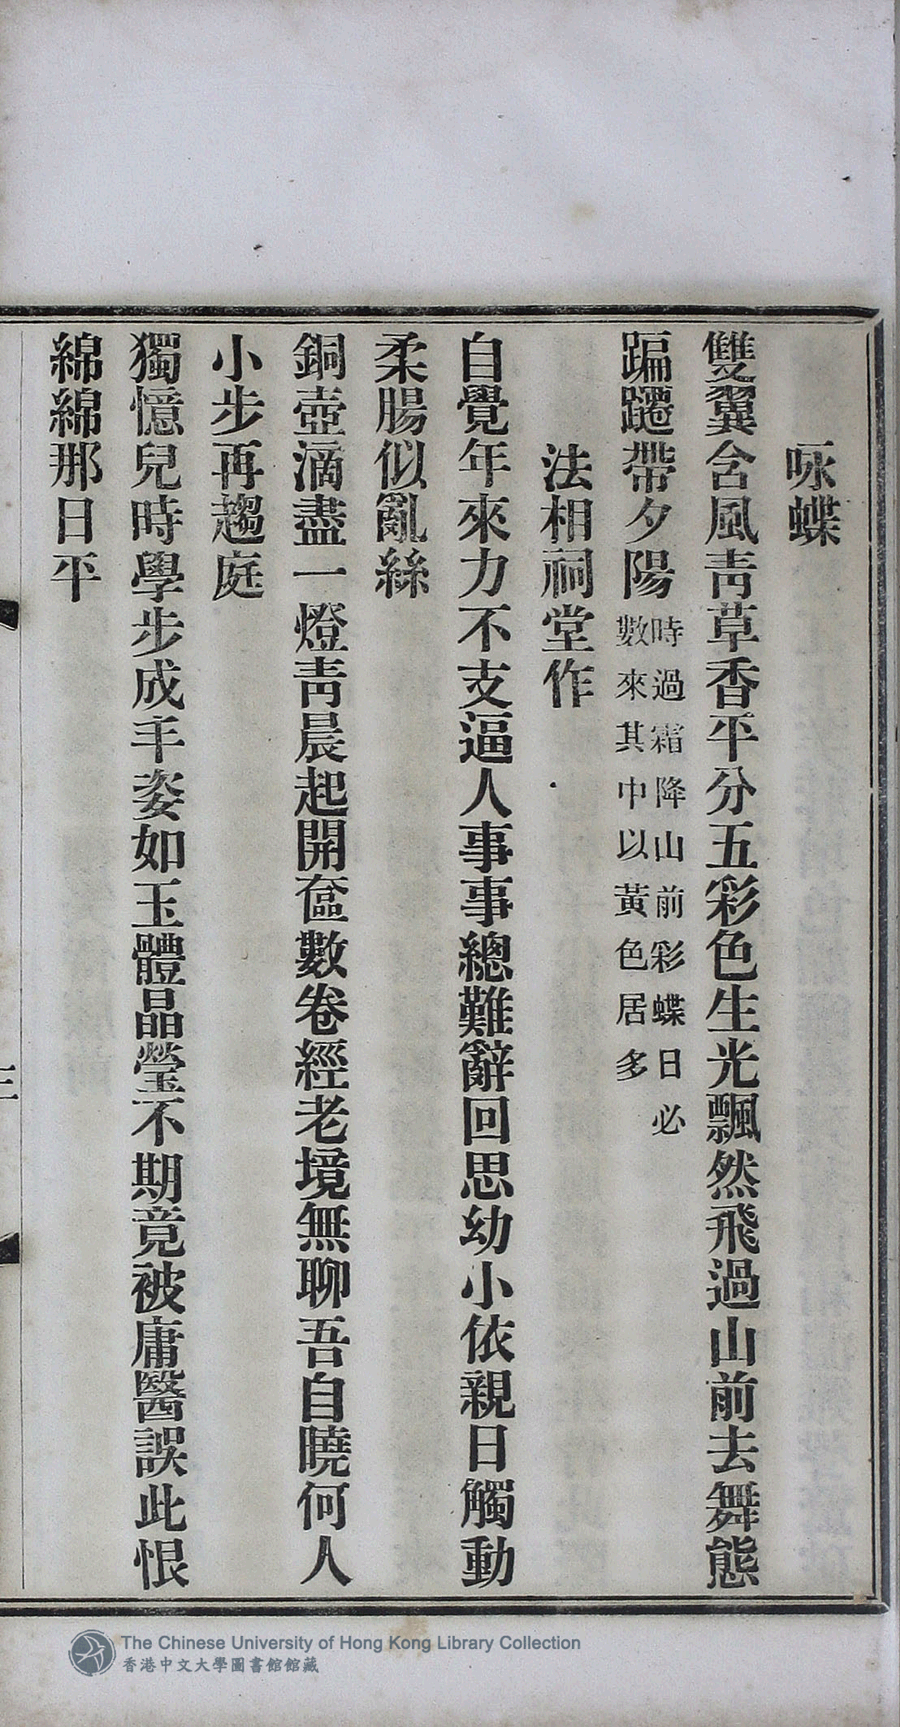 咏蝶
雙翼含風靑草香平分五彩色生光飄然飛過山前去舞態
蹁躚帶夕陽時過霜降山前彩蝶日必
數來其中以黃色居多
法相祠堂作
自覺年來力不支逼人事事總難辭回思幼小依親日觸動
柔腸似亂絲
銅壺滴盡一燈靑晨起開奩數卷經老境無聊吾自曉何人
小步再趨庭
獨憶兒時學步成丰姿如玉體晶瑩不期竟被庸醫誤此恨
綿綿那日平
The Chinese University of Hong Kong Library Collection
香港中文大學圖書館館藏